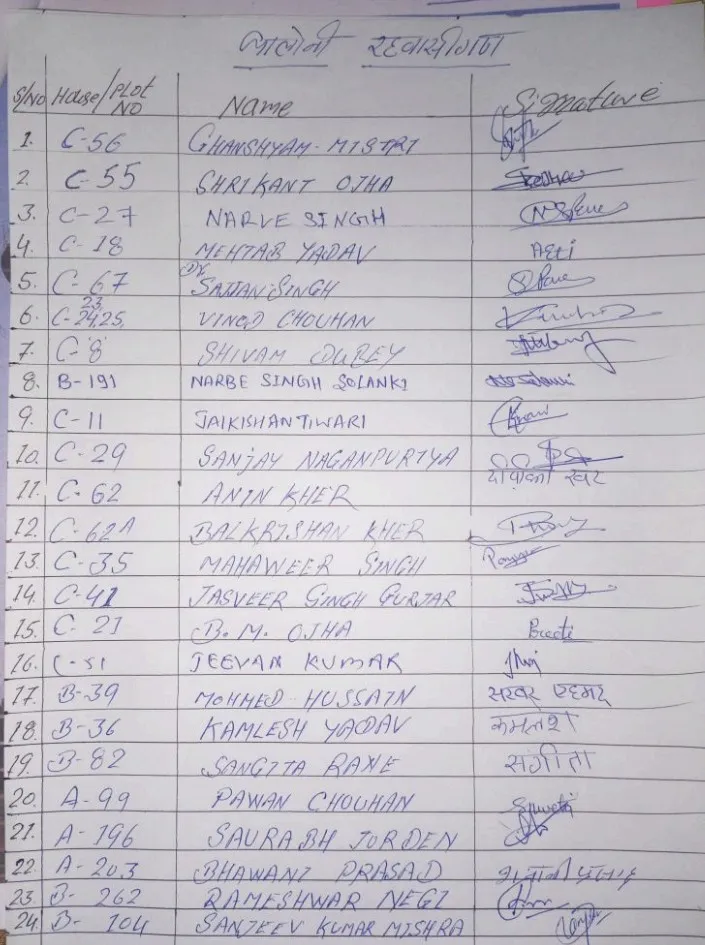 कालोनी रहवासीगण
S/No House/PLOT NO Name Signature
1. C-56 GHANSHYAM MISTRI
2. C-55 SHRIKANT OJHA
3. C-27 NARVE SINGH
4. C-18 MEHTAB YADAV Aeti
5. C-67 SAJJAN SINGH
6. C-23, 24,25, VINOD CHOUHAN
7. C-8 SHIVAM DUBEY
8. B-191 NARBE SINGH SOLANKI
9. C-11 JAIKISHAN TIWARI
10. C-29 SANJAY NAGANPURIYA
11. C-62 ANIN KHER दीपिका खेर
12. C-62A BALKRISHAN KHER
13. C-35 MAHAWEER SINGH
14. C-41 JASVEER SINGH GURJAR
15. C-21 B.M. OJHA
16. C-51 JEEVAN KUMAR
17. B-39 MOHMED HUSSAIN
18. B-36 KAMLESH YADAV कमलेश
19. B-82 SANGITA RANE संगीता
20. A-99 PAWAN CHOUHAN
21. A-196 SAURABH JORDEN
22. A-203 BHAWANI PRASAD भवानी प्रसाद
23. B-262 RAMESHWAR NEGI
24. B-104 SANJEEV KUMAR MISHRA